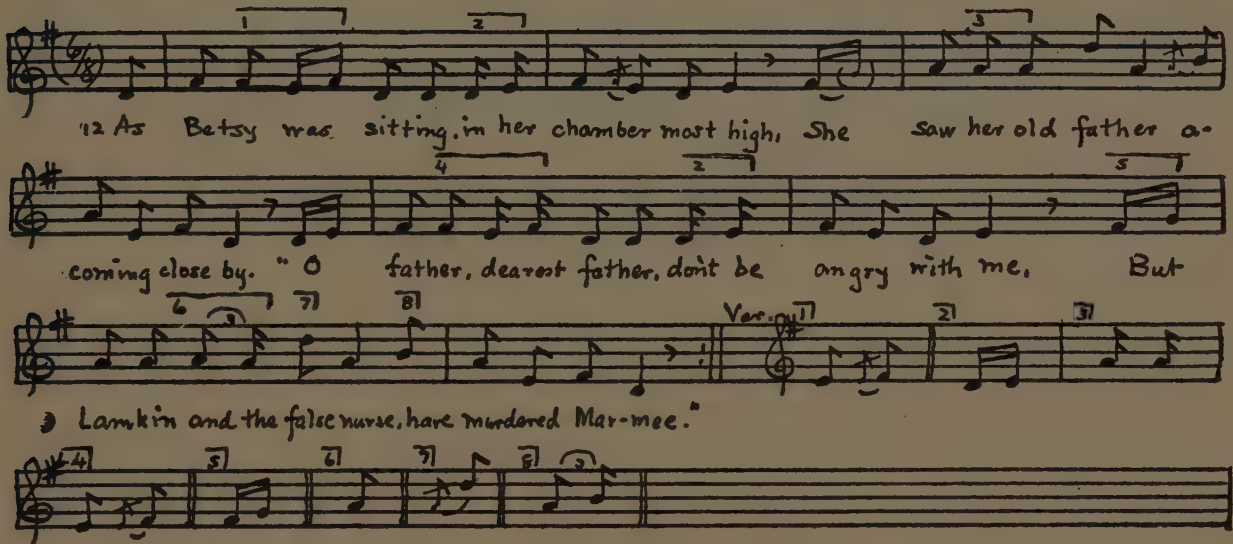 (6/8)
1 2 3
12 As Betsy was sitting, in her chamber most high, She saw her old father a-
4 2 5
coming close by. "O father, dearest father, don't be angry with me, But
6 3 7 8 Var. 1 2 3
Lamkin and the false nurse, have murdered Mar-mee."
4 5 6 7 8 3